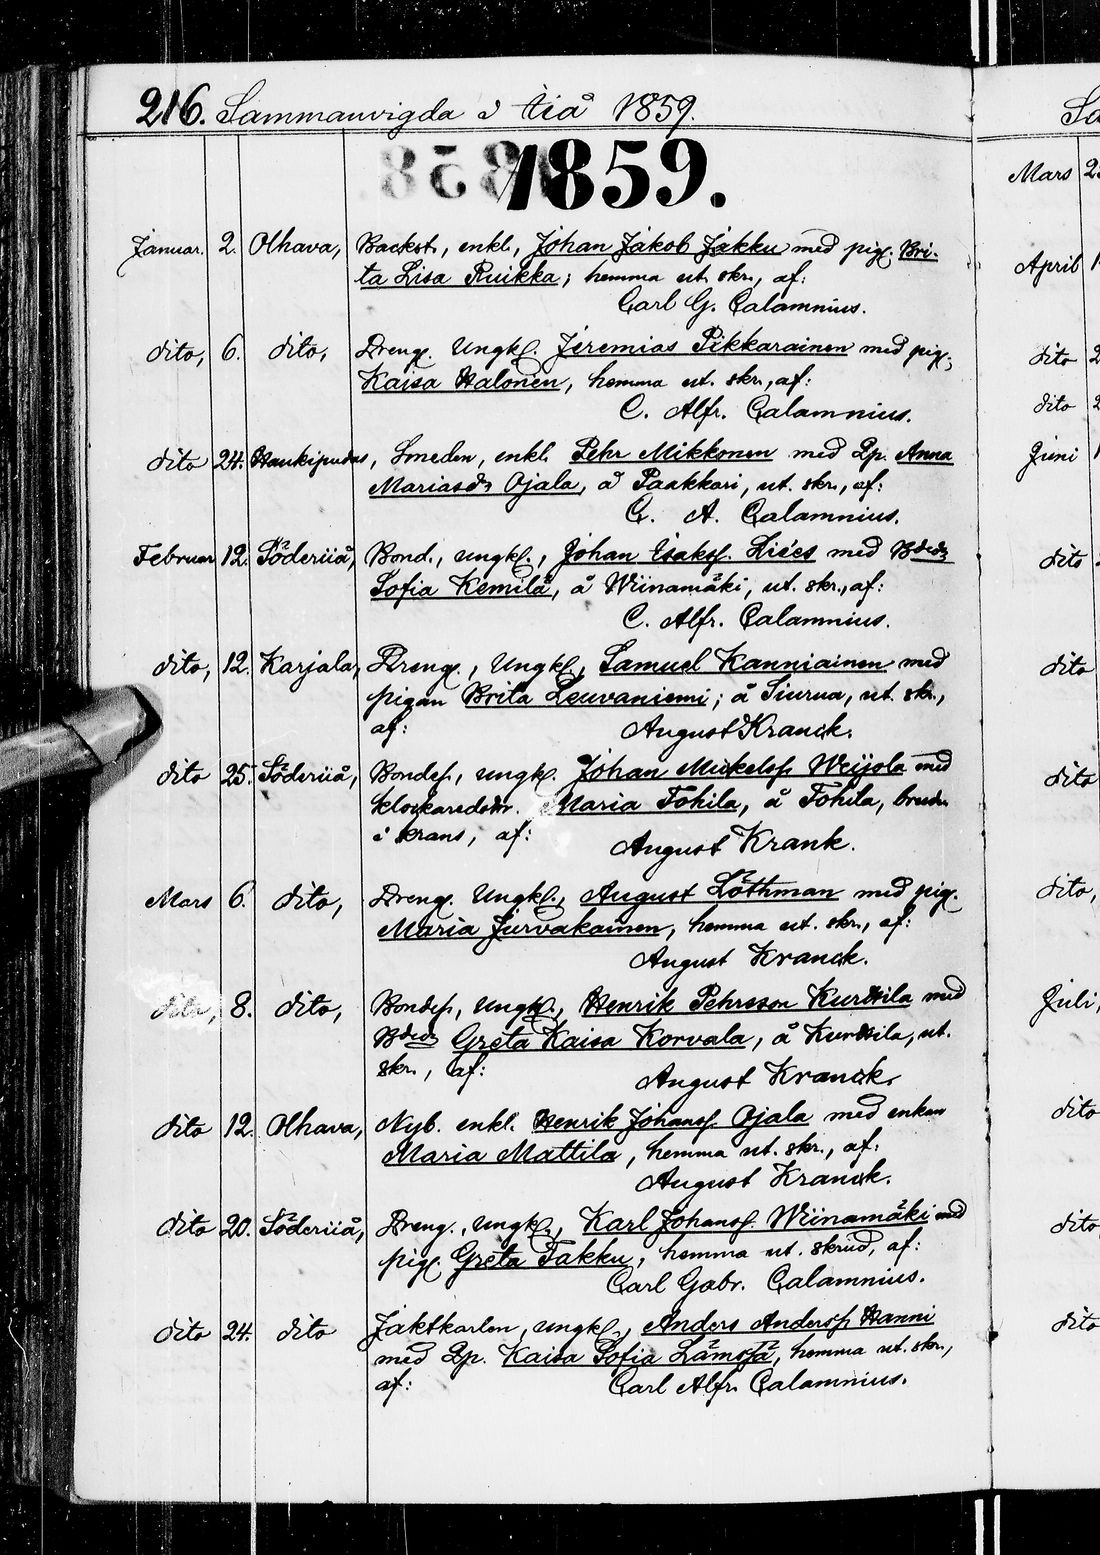 216. Sammanvigda i Iiå 1859.
1859.
Januar. 2. Olhava, Backst., enkl., Johan Jakob Jakku med pig. Bri-
ta Lisa Ruikka; hemma ut. skr., af:
Carl G. Calamnius.
dito, 6. dito, Dreng. Ungk. Jeremias Pikkarainen med pig.
Kaisa Halonen, hemma ut. skr., af:
C. Alfr. Calamnius.
dito 24. Haukipudas, Smeden, enkl. Pehr Mikkonen med Qp. Anna
Mariasdr Ojala, å Paakkari, ut. skr., af:
C. A. Calamnius.
Februar 12. Söderiiå, Bond., ungk., Johan Isaks. Liées med Bdedr
Sofia Kemilä, å Wiinamäki, ut. skr., af:
C. Alfr. Calamnius.
dito, 12. Karjala, Dreng., Ungk., Samuel Kanniainen med
pigan Brita Leuvaniemi; å Siurua, ut. skr.,
af: August Kranck.
dito 25. Söderiiå, Bondes., ungk. Johan Mickelss. Weijola med
klockaredotr. Maria Tohila, å Tohila, bruden
i krans, af:
August Krank.
Mars 6. dito, Dreng. Ungk., August Löthman med pig.
Maria Jurvakainen, hemma ut. skr., af:
August Kranck.
dito, 8. dito, Bondes., Ungk., Henrik Pehrsson Kurttila med
Bdedr Greta Kaisa Korvala, å Kurttila, ut.
skr., af:
August Kranck.
dito 12. Olhava, Nyb. enkl. Henrik Johans. Ojala med enkan
Maria Mattila, hemma ut. skr., af:
August Kranck.
dito 20. Söderiiå, Dreng., ungk., Karl Johans. Wiinamäki med
pig. Greta Takku, hemma ut. skrud, af:
Carl Gabr. Calamnius.
dito 24. dito Jaktkarlen, ungk., Anders Anderss. Hanni
med Qp. Kaisa Sofia Lämsä, hemma ut. skr.,
af: Carl Alfr. Calamnius.
Mars
April
dito
dito
Juni
dito
dito
dito
dito,
Juli,
dito
dito,
dito